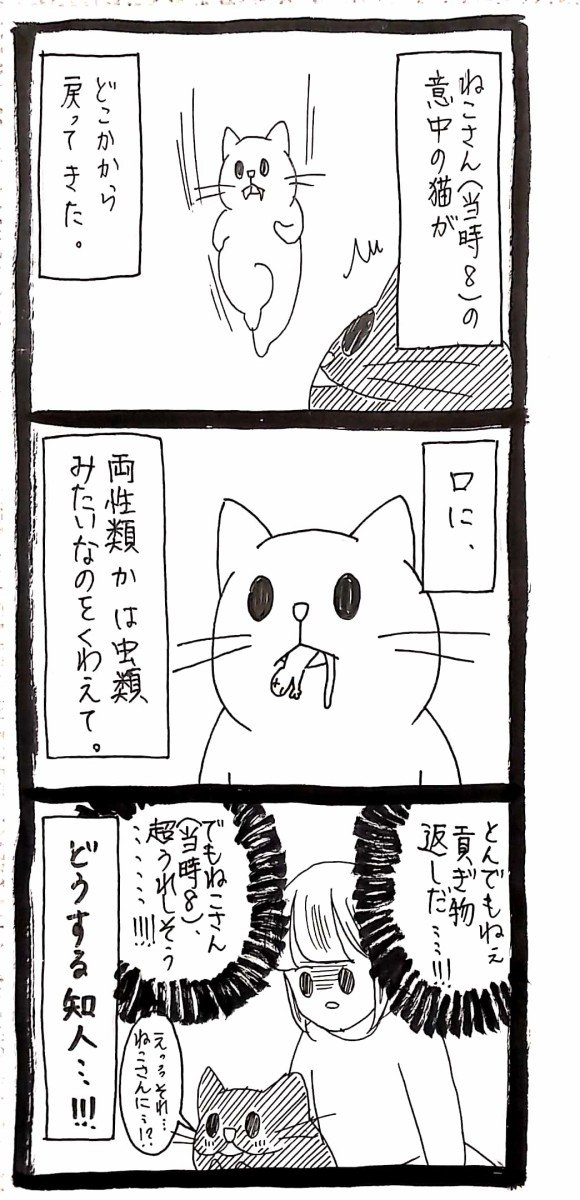 ねこさん(当時8)の
意中の猫が
どこかから
戻ってきた。
口に、
両性類かは虫類
みたいなのをくわえて。
とんでもねぇ
貢ぎ物
返しだ……!!!
でもねこさん
(当時8)、
超うれしそう
……………!!!!
えっっそれ…
ねこさんに…!?
どうする知人…!!!